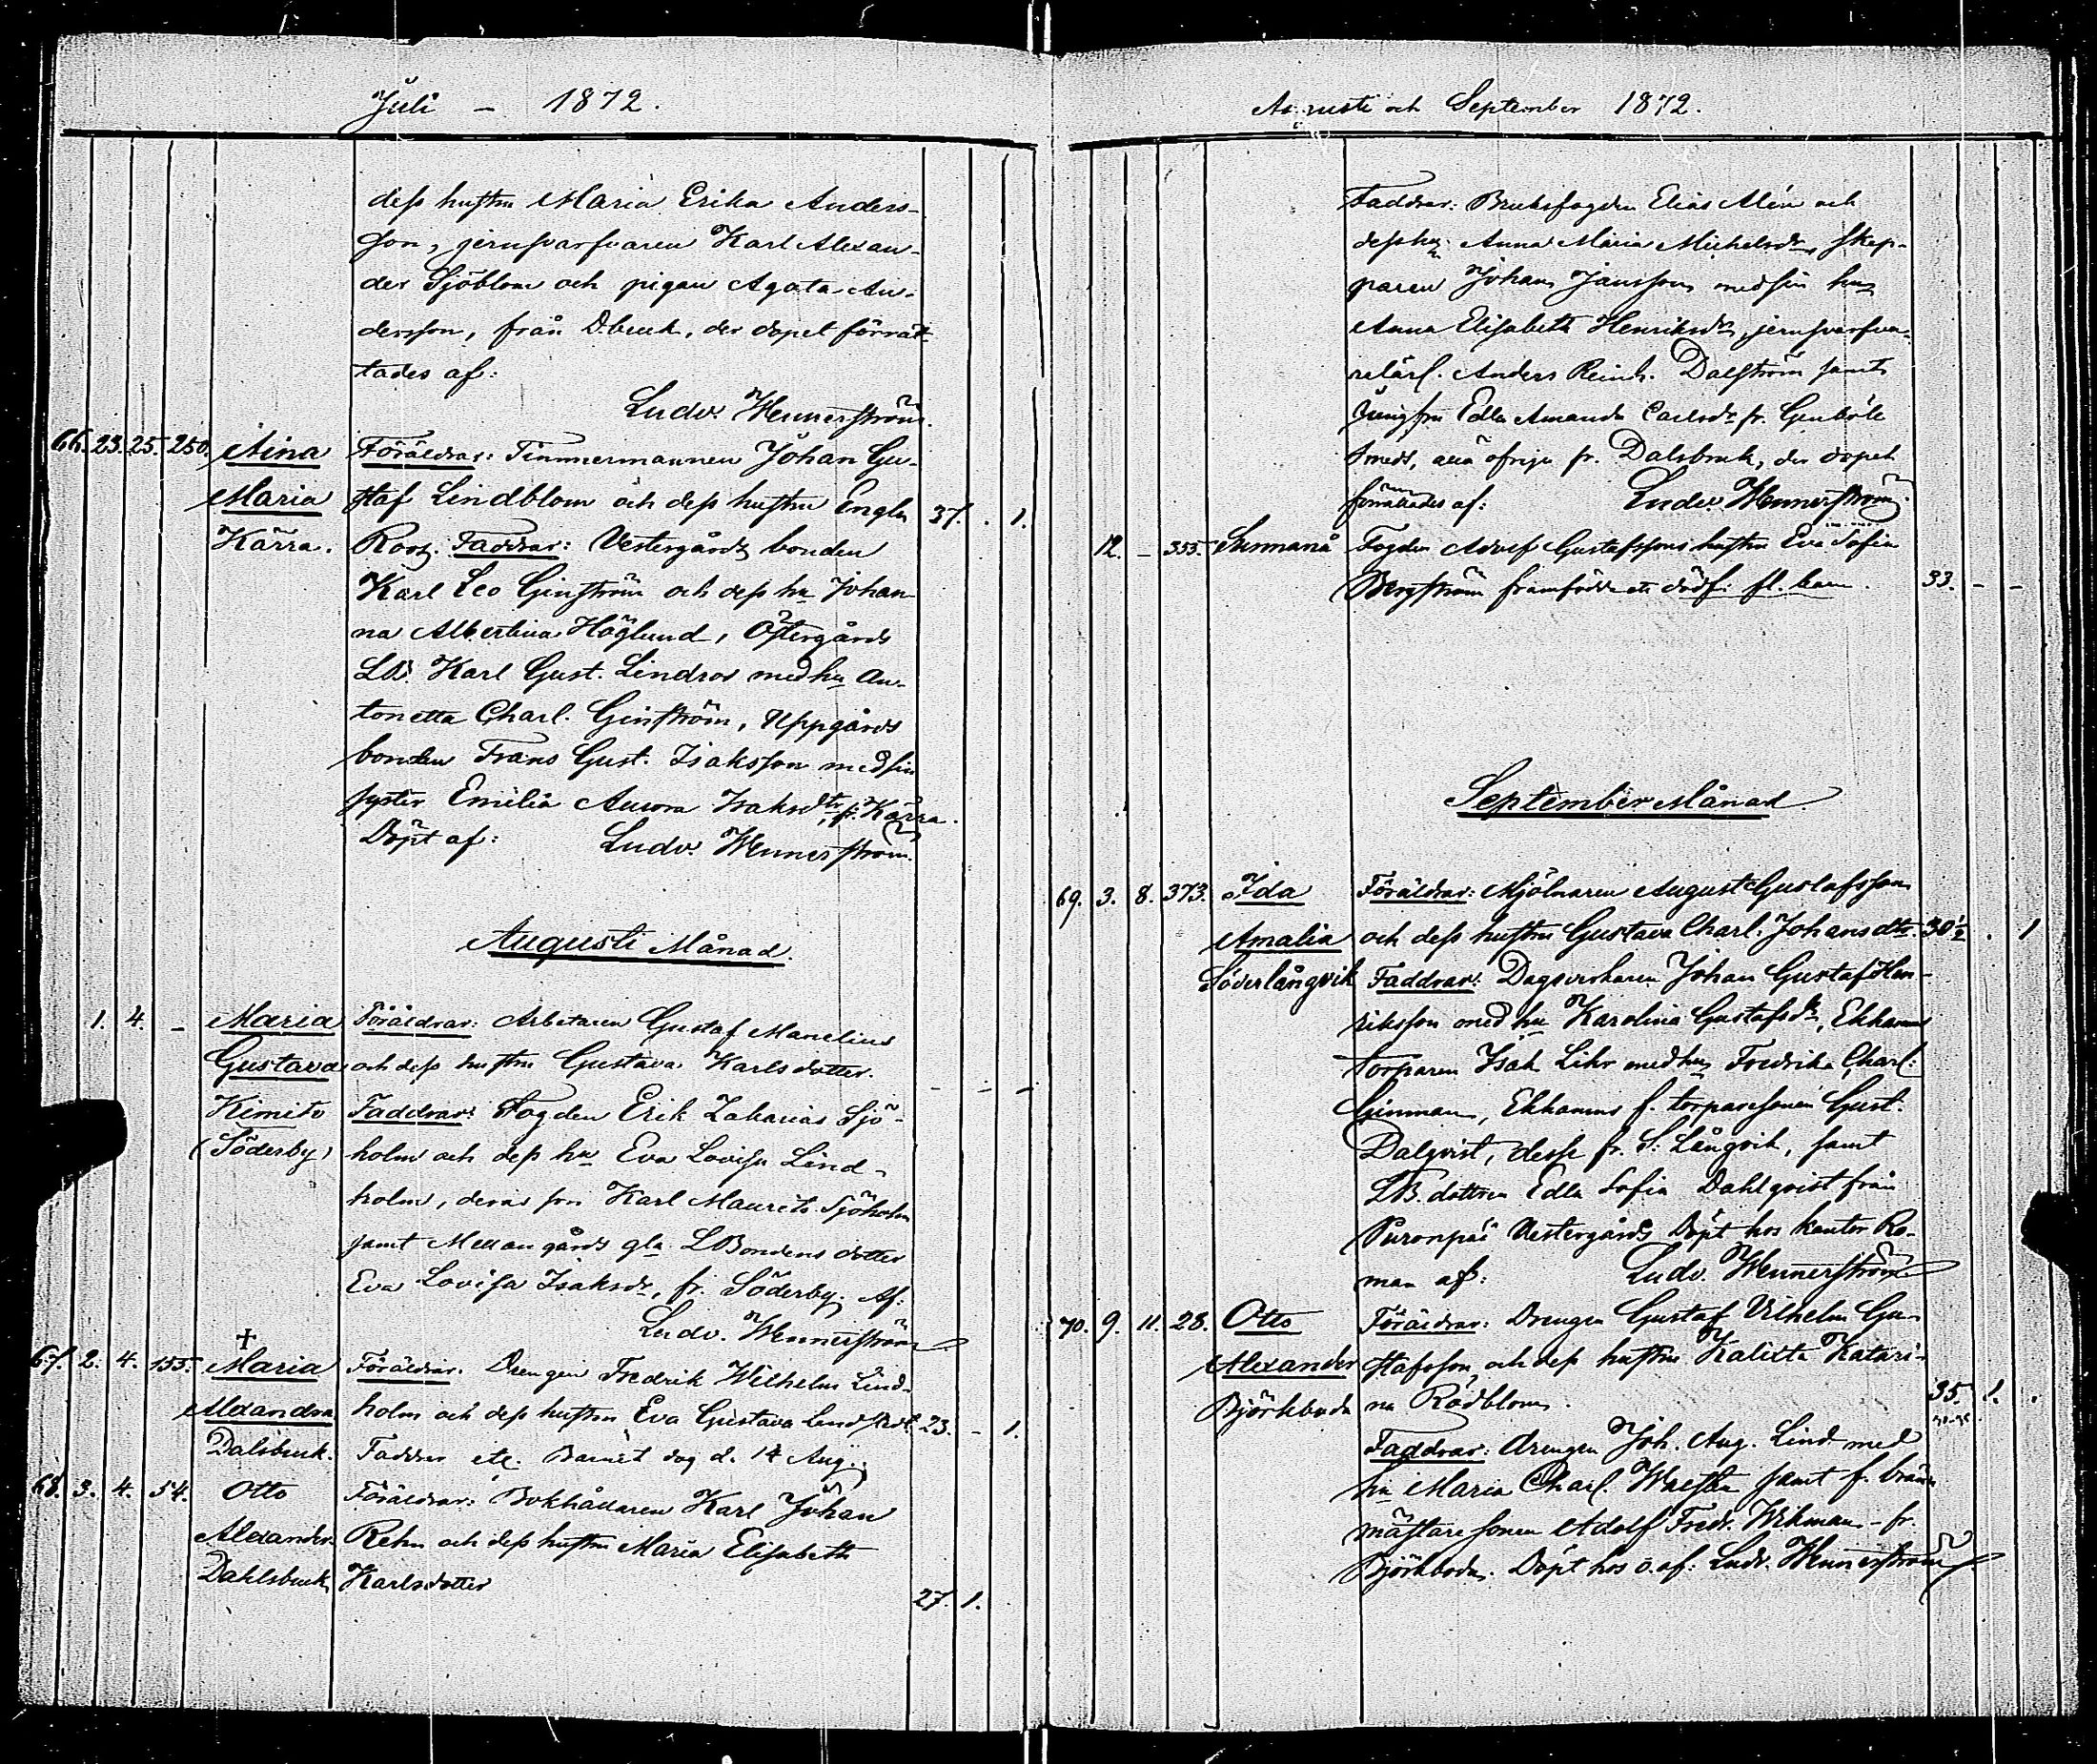 Juli - 1872.
dess hustru Maria Erika Anders-
son, jernsvarfvaren Karl Alexan-
der Sjöblom och pigan Agata An-
dersson, från D.bruk, der dopet förrät-
tades af:
Ludv. Wennerström.
66. 23. 25. 250. Aina Föräldrar: Timmermannen Johan Gu-
Maria staf Lindblom och dess hustru Engla 37. . 1.
Kärra. Roos. Faddrar: Vestergårds bonden
Karl Leo Ginström och dess hu Johan-
na Albertina Höglund, Östergårds
LB. Karl Gust. Lindros med hu An-
tonetta Charl. Ginström, Uppgårds
bonden Frans Gust. Isaksson med sin
syster Emilia Aurora Isaksdtr, fr. Kärra.
Döpt af: Ludv. Wennerström.
Augusti Månad.
1. 4. - Maria Föräldrar: Arbetaren Gustaf Manelius
Gustava och dess hustru Gustava Karlsdotter. - - -
Kimito Faddrar: Fogden Erik Zakarias Sjö-
(Söderby) holm och dess hu Eva Lovisa Lind-
holm, deras son Karl Maurits Sjöholm
samt Mellangårds gla LBondens dotter
Eva Lovisa Isaksdr, fr. Söderby. Af:
Ludv. Wennerström
67. 2. 4. 155. Maria Föräldrar: Drengen Fredrik Wilhelm Lind-
Alexandra holm och dess hustru Eva Gustava 23. - 1.
Dalsbruk. Faddrar etc. Barnet dog d. 14 Aug.
68. 3. 4. 54. Otto Föräldrar: Bokhållaren Karl Johan
Alexander Rehn och dess hustru Maria Elisabeth
Dahlsbruk Karlsdotter 27. 1.
Augusti och September 1872.
Faddrar: Bruksfogden Elias Alén och
dess hu Anna Maria Michelsdr, skep-
paren Johan Jansson med sin hu
Anna Elisabeth Henriksdr, jernsvarfva-
relärl. Anders Reinh. Dalström samt
Jungfru Edla Amanda Carlsdr fr. Genböle
smeds, alla öfriga fr. Dalsbruk, der dopet
förrättades af: Ludv. Wennerström.
12. - 355. Sunnanå Fogden Adolf Gustafssons hustru Eva Sofia
Bergström framfödde ett dödf. fl. barn. 33. - -
September Månad
69. 3. 8. 373. Ida Föräldrar: Mjölnaren August Gustafsson
Amalia och dess hustru Gustava Charl. Johansdtr. 30½ . 1
Söderlångvik Faddrar: Dagsverkaren Johan Gustaf Hen-
riksson med hu Karolina Gustafsdr, Ekhamns
torparen Isak Lihr med hu Fredrika Charl.
Ginman, Ekhamns f. torparesonen Gust.
Dalqvist, desse fr. S. Långvik, samt
LB. dottren Edla Sofia Dahlqvist från
Puronpää Vestergårds Döpt hos kantor Ro-
man af: Ludv. Wennerström
70. 9. 11. 28. Otto Föräldrar: Drengen Gustaf Vilhelm Gu-
Alexander stafsson, och dess hustru Kalixta Katari-
Björkboda na Rödblom. 35. 1. .
Faddrar: drengen Joh. Aug. Lind med
hu Maria Charl. samt f.
mästaresonen Adolf Fredr. Wikman - fr.
Björkboda. Döpt hos o. af: Ludv. Wennerström